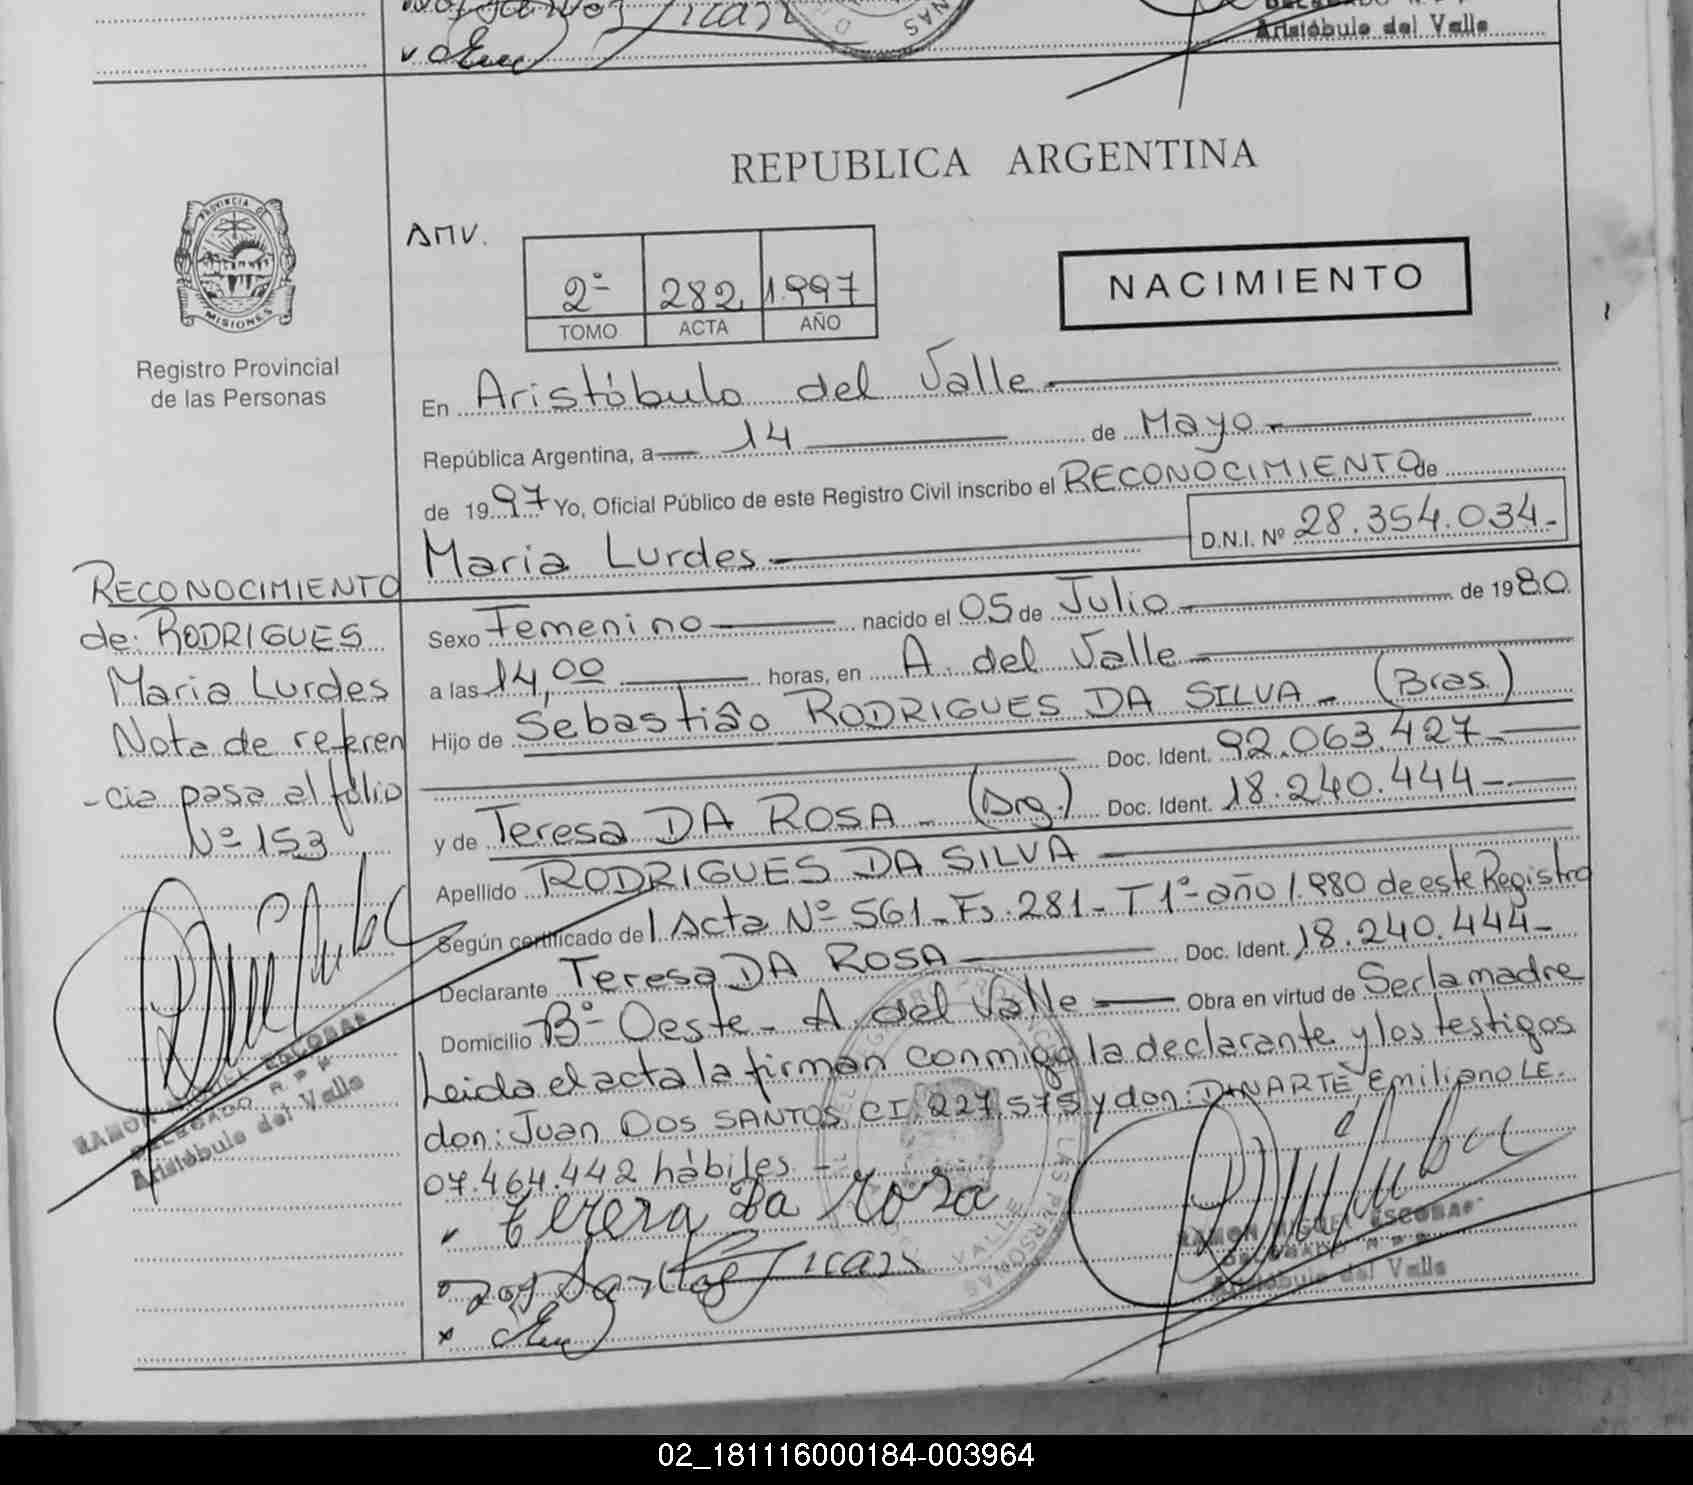 Aristóbulo del Valle
REPUBLICA ARGENTINA
PROVINCIA DE
MISIONES
Registro Provincial
de las Personas
AMV.
2º 282 1.997
TOMO ACTA AÑO
NACIMIENTO
En Aristóbulo del Valle
República Argentina, a 14 de Mayo
de 1997 Yo, Oficial Público de este Registro Civil inscribo el RECONOCIMIENTO de
Maria Lurdes D.N.I. Nº 28.354.034
RECONOCIMIENTO
de: RODRIGUES
Maria Lurdes
Nota de referen
-cia pasa al fólio
Nº 153
Sexo Femenino nacido el 05 de Julio de 1980
a las 14,00 horas, en A. del Valle
Hijo de Sebastião RODRIGUES DA SILVA - (Bras.)
Doc. Ident. 92.063.427
y de Teresa DA ROSA - (Arg.) Doc. Ident. 18.240.444
Apellido RODRIGUES DA SILVA
Según certificado de l Acta Nº 561 - Fs: 281 - T 1º - año 1.980 de este Registro
Declarante Teresa DA ROSA Doc. Ident. 18.240.444
Domicilio Bº Oeste - A. del Valle Obra en virtud de Ser la madre
Leida el acta la firman conmigo la declarante y los testigos
don: Juan DOS SANTOS CI. 227.575 y don: DUARTE Emiliano LE.
07.464.442 hábiles -
Teresa Da Rosa
Dos Santos Juan
RAMON MIGUEL ESCOBAR
DELEGADO R P P
Aristóbulo del Valle
RAMON MIGUEL ESCOBAR
DELEGADO R P P
Aristóbulo del Valle
02_181116000184-003964